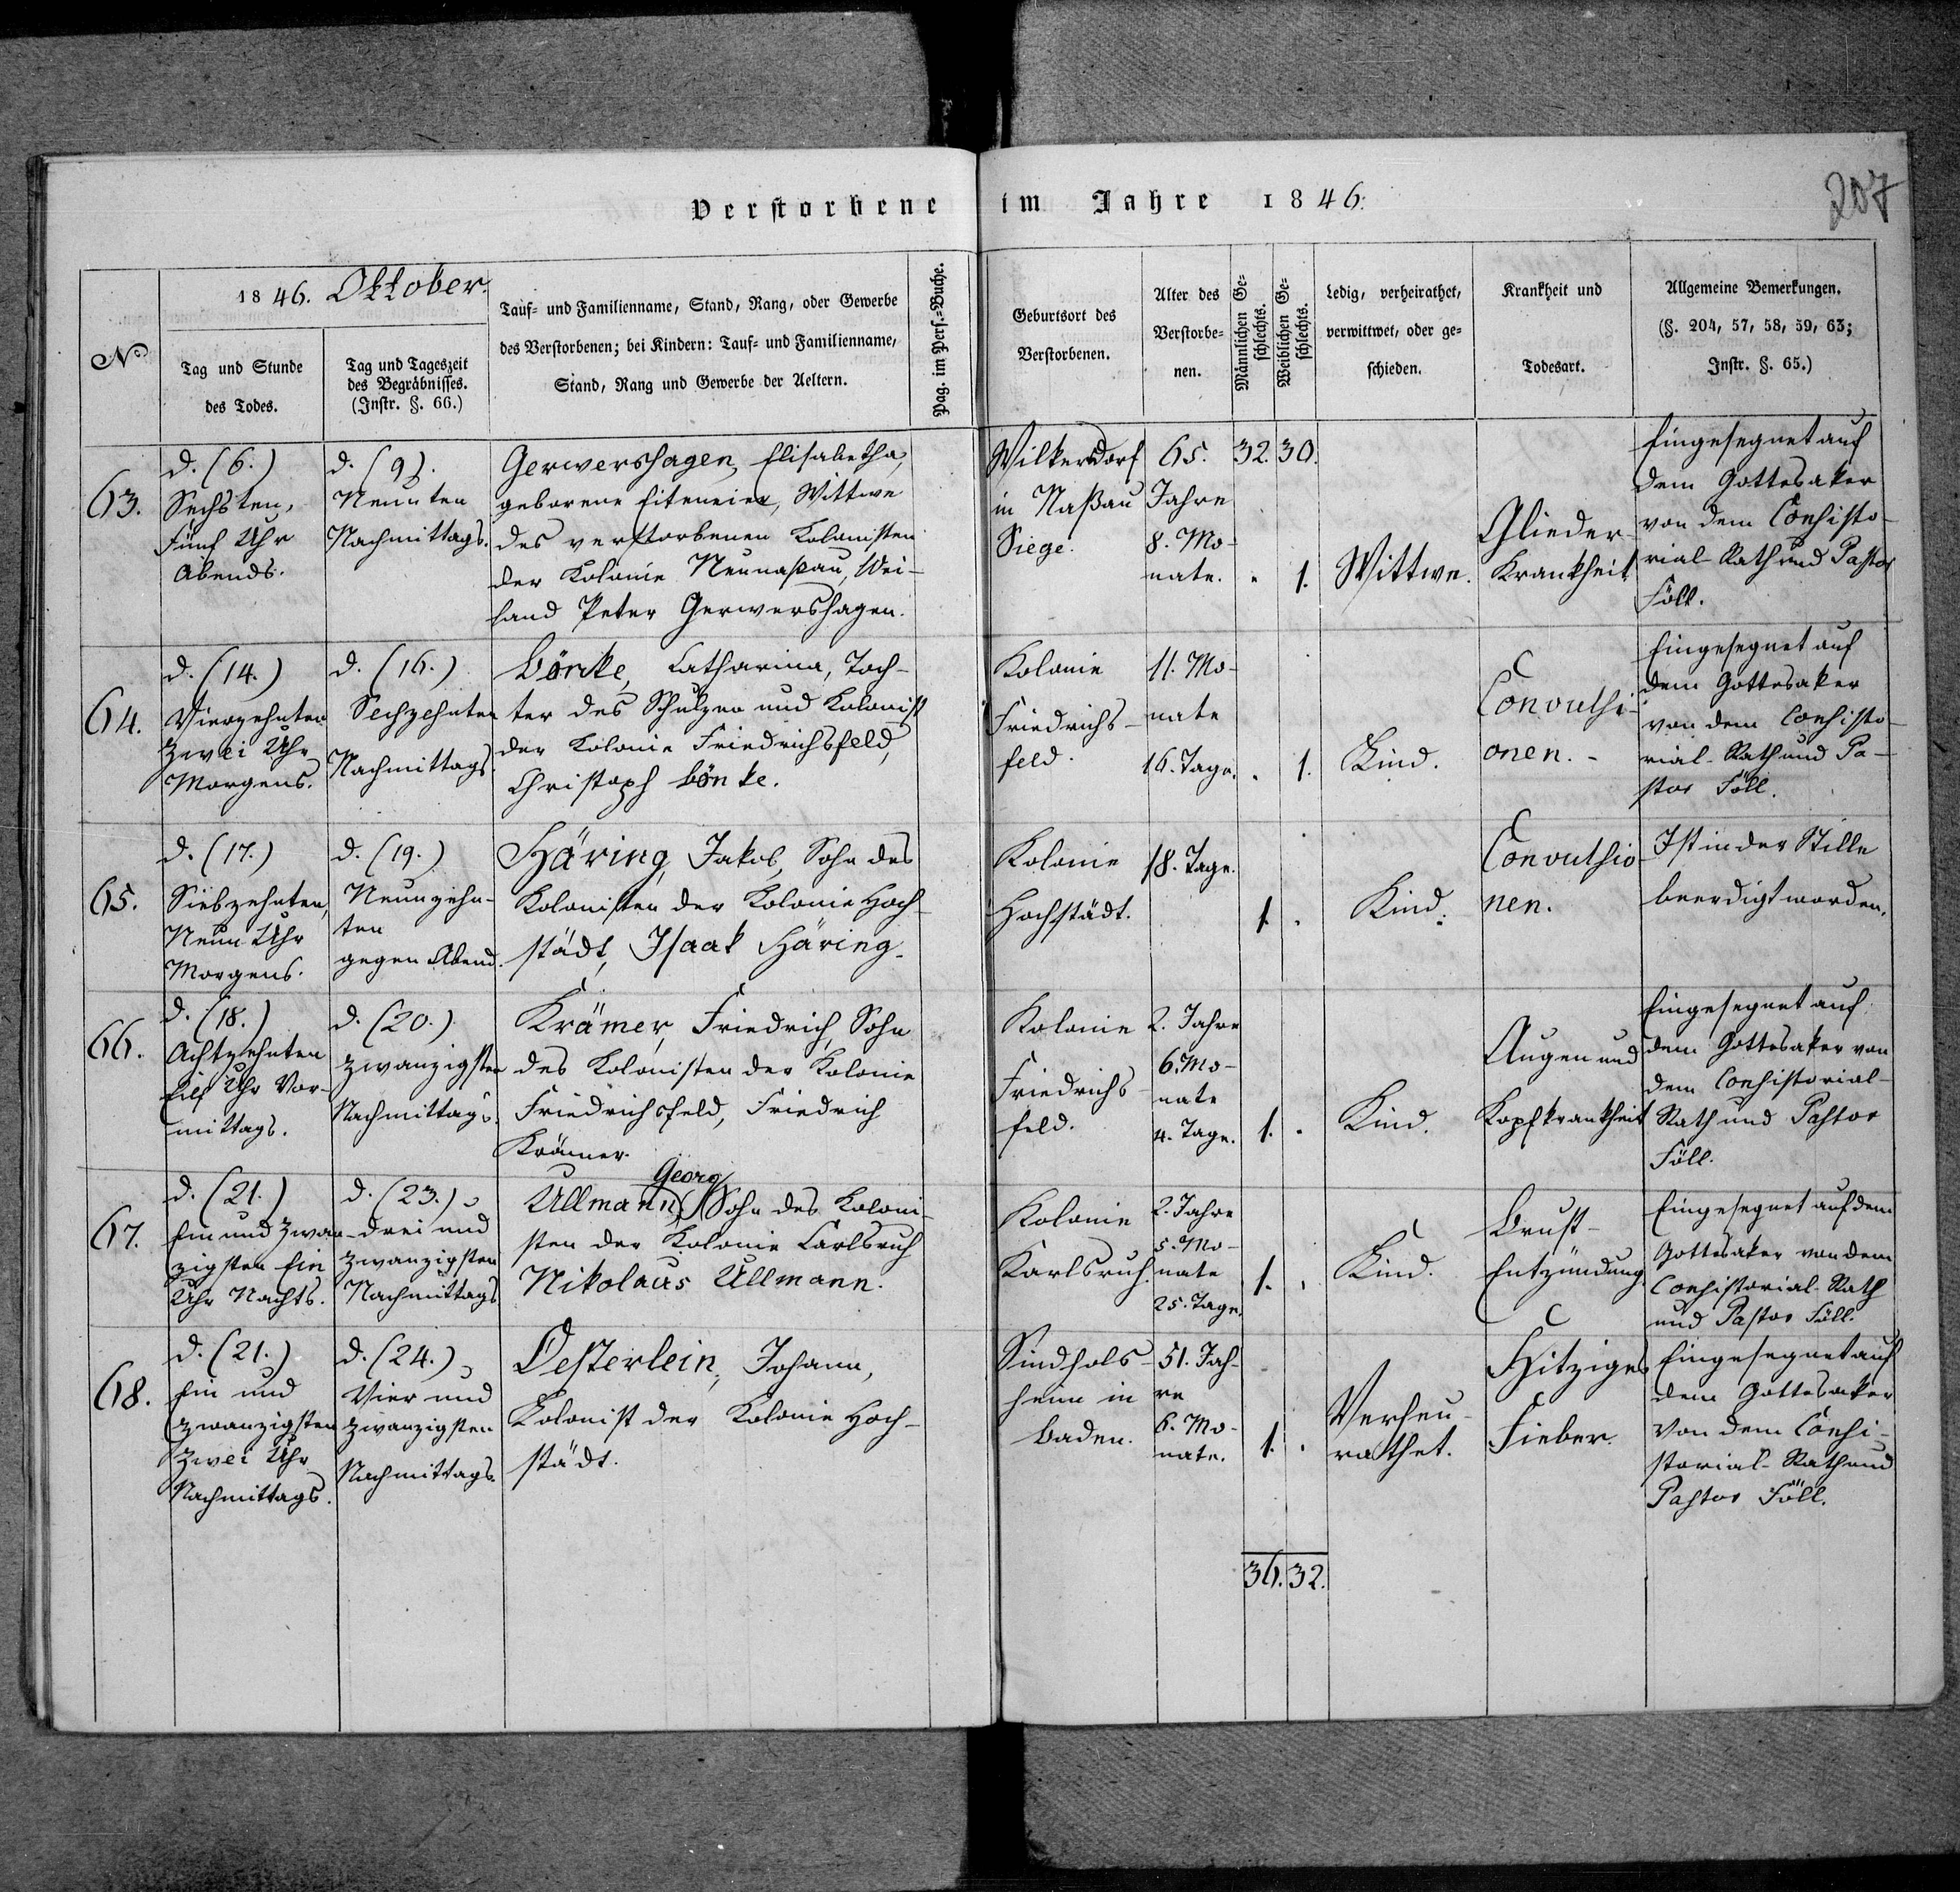 Verstorbene im Jahre 1846.
207
No
1846. Oktober.
Tag und Stunde
des Todes.
Tag und Tageszeit
des Begräbnisses.
(Instr. §. 66.)
Tauf- und Familienname, Stand, Rang, oder Gewerbe
des Verstorbenen; bei Kindern: Tauf- und Familienname,
Stand, Rang und Gewerbe der Aeltern.
Pag. im Pers.-Buche.
Geburtsort des
Verstorbenen.
Alter des
Verstorbe-
nen.
Männlichen Ge-
schlechts.
Weiblichen Ge-
schlechts.
Ledig, verheirathet,
verwittwet, oder ge-
schieden.
Krankheit und
Todesart.
Allgemeine Bemerkungen.
(§. 204, 57, 58, 59, 63;
Instr. §. 65.)
63.
d. (6.)
Sechsten,
Fünf Uhr
Abends.
d. (9).
Neunten
Nachmittags.
Gerwershagen, Elisabetha,
geborene Eiteneier, Wittwe
des verstorbenen Kolonisten
der Kolonie Neunaßau, Wei-
land Peter Gerwershagen.
Wilkersdorf
in Naßau
Siege.
65.
Jahre
8. Mo-
nate.
32. 30.
1.
Wittwe.
Glieder-
Krankheit
Eingesegnet auf
dem Gottesaker
von dem Consisto-
rial-Rath und Pastor
Föll.
64.
d. (14.)
Vierzehnten
Zwei Uhr
Morgens.
d. (16.)
Sechzehnten
Nachmittags.
Bönke, Catharina, Toch-
ter des Schulzen und Kolonist
der Kolonie Friedrichsfeld,
Christoph Bönke.
Kolonie
Friedrichs-
feld.
11. Mo-
nate
16. Tage.
1.
Kind.
Convulsi-
onen.
Eingesegnet auf
dem Gottesaker
von dem Consisto-
rial-Rath und Pa-
stor Föll.
65.
d. (17.)
Siebzehnten,
Neun Uhr
Morgens.
d. (19.)
Neunzehn-
ten
gegen Abend.
Häring, Jakob, Sohn des
Kolonisten der Kolonie Hoch-
städt, Isaak Häring.
Kolonie
Hochstädt.
18. Tage.
1.
Kind.
Convulsio-
nen.
Ist in der Stille
beerdigt worden.
66.
d. (18.)
Achtzehnten
Eilf Uhr Vor-
mittags.
d. (20.)
zwanzigsten
Nachmittags.
Krämer, Friedrich, Sohn
des Kolonisten der Kolonie
Friedrichsfeld, Friedrich
Krämer.
Kolonie
Friedrichs-
feld.
2. Jahre
6. Mo-
nate
4. Tage.
1.
Kind.
Augen und
Kopfkrankheit
Eingesegnet auf
dem Gottesaker von
dem Consistorial-
Rath und Pastor
Föll.
67.
d. (21.)
Ein und zwan-
zigsten Ein
Uhr Nachts.
d. (23.)
drei und
zwanzigsten
Nachmittags
Georg
Ullmann, Sohn des Koloni-
sten der Kolonie Carlsruh
Nikolaus Ullmann.
Kolonie
Karlsruh.
2. Jahre
5. Mo-
nate
25. Tage.
1.
Kind.
Brust-
Entzündung
Eingesegnet auf dem
Gottesaker von dem
Consistorial-Rath
und Pastor Föll.
68.
d. (21.)
Ein und
zwanzigsten
Zwei Uhr
Nachmittags.
d. (24.)
Vier und
zwanzigsten
Nachmittags.
Oesterlein, Johann,
Kolonist der Kolonie Hoch-
städt.
Sindhols-
heim in
Baden.
51. Jah-
re
6. Mo-
nate.
1.
Verheu-
rathet.
Hitziges
Fieber.
Eingesegnet auf
dem Gottesaker
von dem Consi-
storial-Rath und
Pastor Föll.
36. 32.